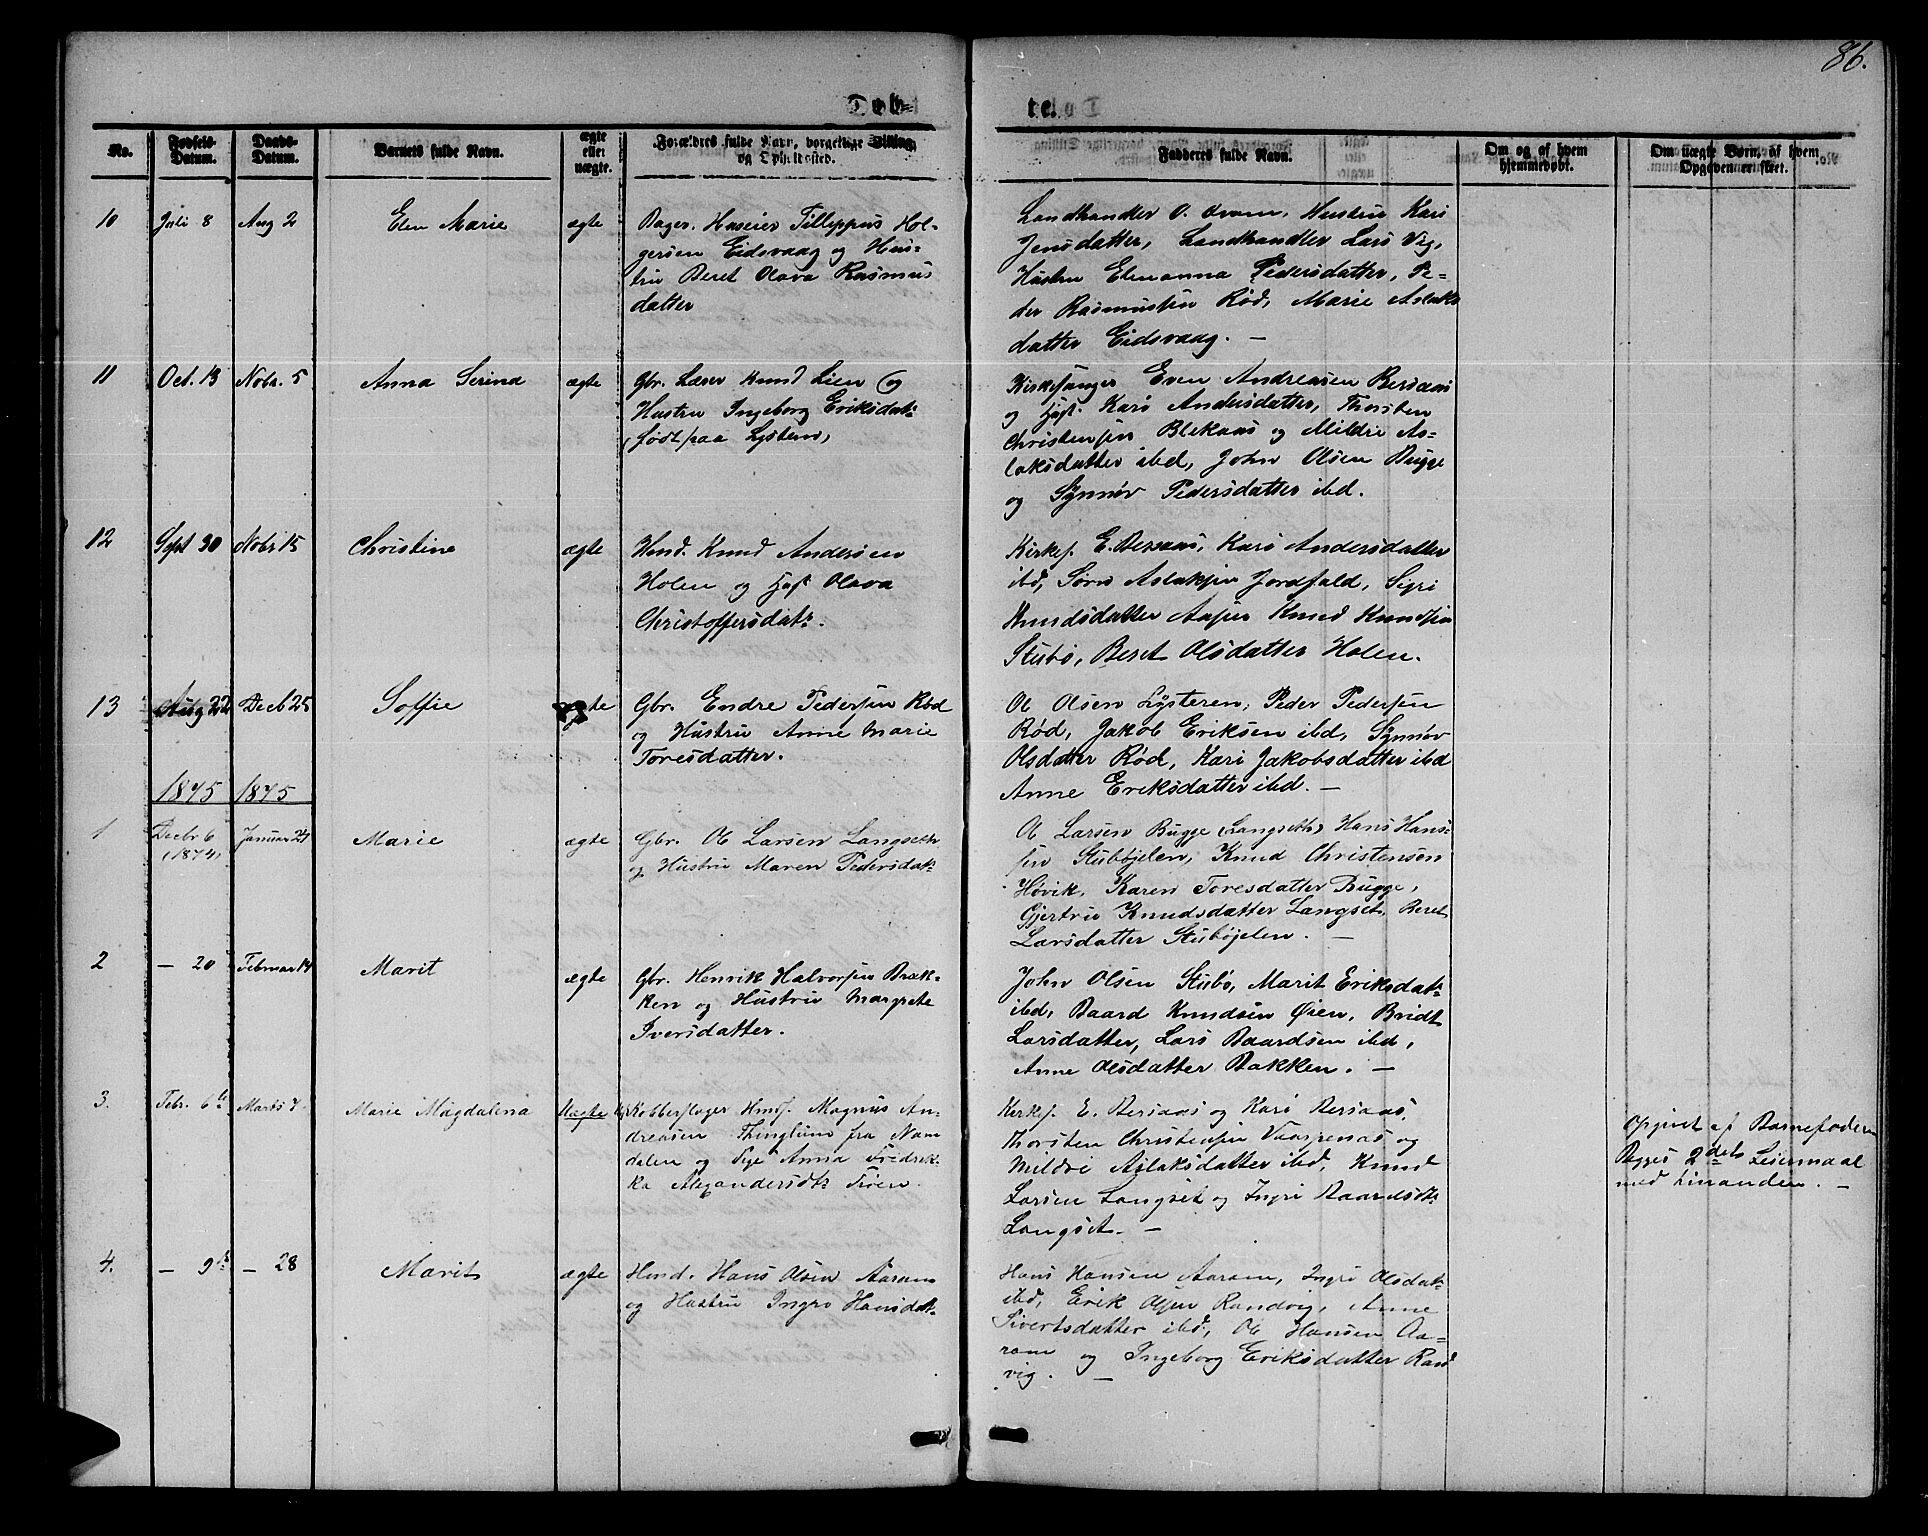 86.
Døb-
te.
No.
Fødsels-
Datum.
Daabs-
Datum.
Barnets fulde Navn.
ægte
eller
uægte.
Forældres fulde Navn, borgerlige Stilling
og Opholdssted.
Fadderes fulde Navn.
Om og af hvem
hjemmedøbt.
Om uægte Børn, af hvem
Opgaven er skeet.
10
Juli 8
Aug 2
Elen Marie
ægte
Huseier Fillippus Hol-
gersen Eidsvaag og Hus-
tru Beret Olava Rasmus
datter
Landhandler O. Hustru Kari
Jensdatter, Landhandler Lars Vig,
Hustru Elenanna Pedersdatter, Pe-
der Rasmussen Rød, Marie Aslaks
datter Eidsvaag. —
11
Oct. 13
Nobr. 5
Anna Serina
ægte
Gbr. Lærer Knud Lien (og
Hustru Ingeborg Eriksdatr
(født paa Lysteren)
Kirkesanger Even Andreasen Bersaas
og Hust. Kari Andersdatter, Thorsten
Christensen Blekaas og Mildri As-
laksdatter ibd, John Olsen Bugge
og Synnøv Pedersdatter ibd.
12
Sept 30
Nobr 15
Christine
ægte
Hmd. Knud Andersen
Holen og Hust Olava
Christoffersdatr.
Kirkes. E. Bersaas, Kari Andersdatter
ibd, Søren Aslaksen Jordfald, Sigri
Knudsdatter Knud Knudsen
Stubø, Beret Olsdatter Holen.
13
Aug 22
Decb 25
Soffie
ægte
Gbr. Endre Pedersen Rød
og Hustru Anne Marie
Toresdatter.
Ol Olsen Lysteren, Peder Pedersen
Rød, Jakob Eriksen ibd, Synnøv
Olsdatter Rød, Kari Jakobsdatter ibd
Anne Eriksdatter ibd. —
1875
1875
1
Decbr 6
(1874)
Januar 24
Marie
ægte
Gbr. Ol Larsen Langseth
og Hustru Maren Pedersdatr
Ol Larsen Bugge (Langseth) Hans Han-
sen Stubøjelen, Knud Christensen
Høvik, Karen Toresdatter Bugge,
Gjertru Knudsdatter Langset, Beret
Larsdatter Stubøjelen. —
2
— 20
Februar 14
Marit
ægte
Gbr. Henrik Halvorsen Bræk-
ken og Hustru Margrete
Iversdatter.
John Olsen Stubø, Marit Eriksdatr
ibd, Baard Knudsen Øien, Bridt
Larsdatter, Lars Baardsen ibd,
Anne Olsdatter Bakken. —
3.
Febr. 6te
Marts 7
Marie Magdalena
Uægte
Kobberslager Magnus An-
dreasen Thinglum fra Nam
dalen og Pige Anna Fredrik-
ka Alexandersdtr Tiøen.
Kirkes. E. Bersaas og Kari Bersaas,
Thorsten Christensen og
Mildri Aslaksdatter ibd, Knud
Larsen Langset og Ingri Baardsdtr
Langset. —
Opgivet af Barnefaderen
Begges 2det Leiermaal
med hinanden. —
4.
— 9de
— 28
Marit
ægte
Hmd. Hans Olsen Aaram
og Hustru Ingri Hansdatr
Hans Hansen Aaram, Ingri Olsdatr
ibd, Erik Olsen Randvig, Anne
Sivertsdatter ibd, Ol Hansen Aa-
ram og Ingeborg Eriksdatter Rand
vig. —